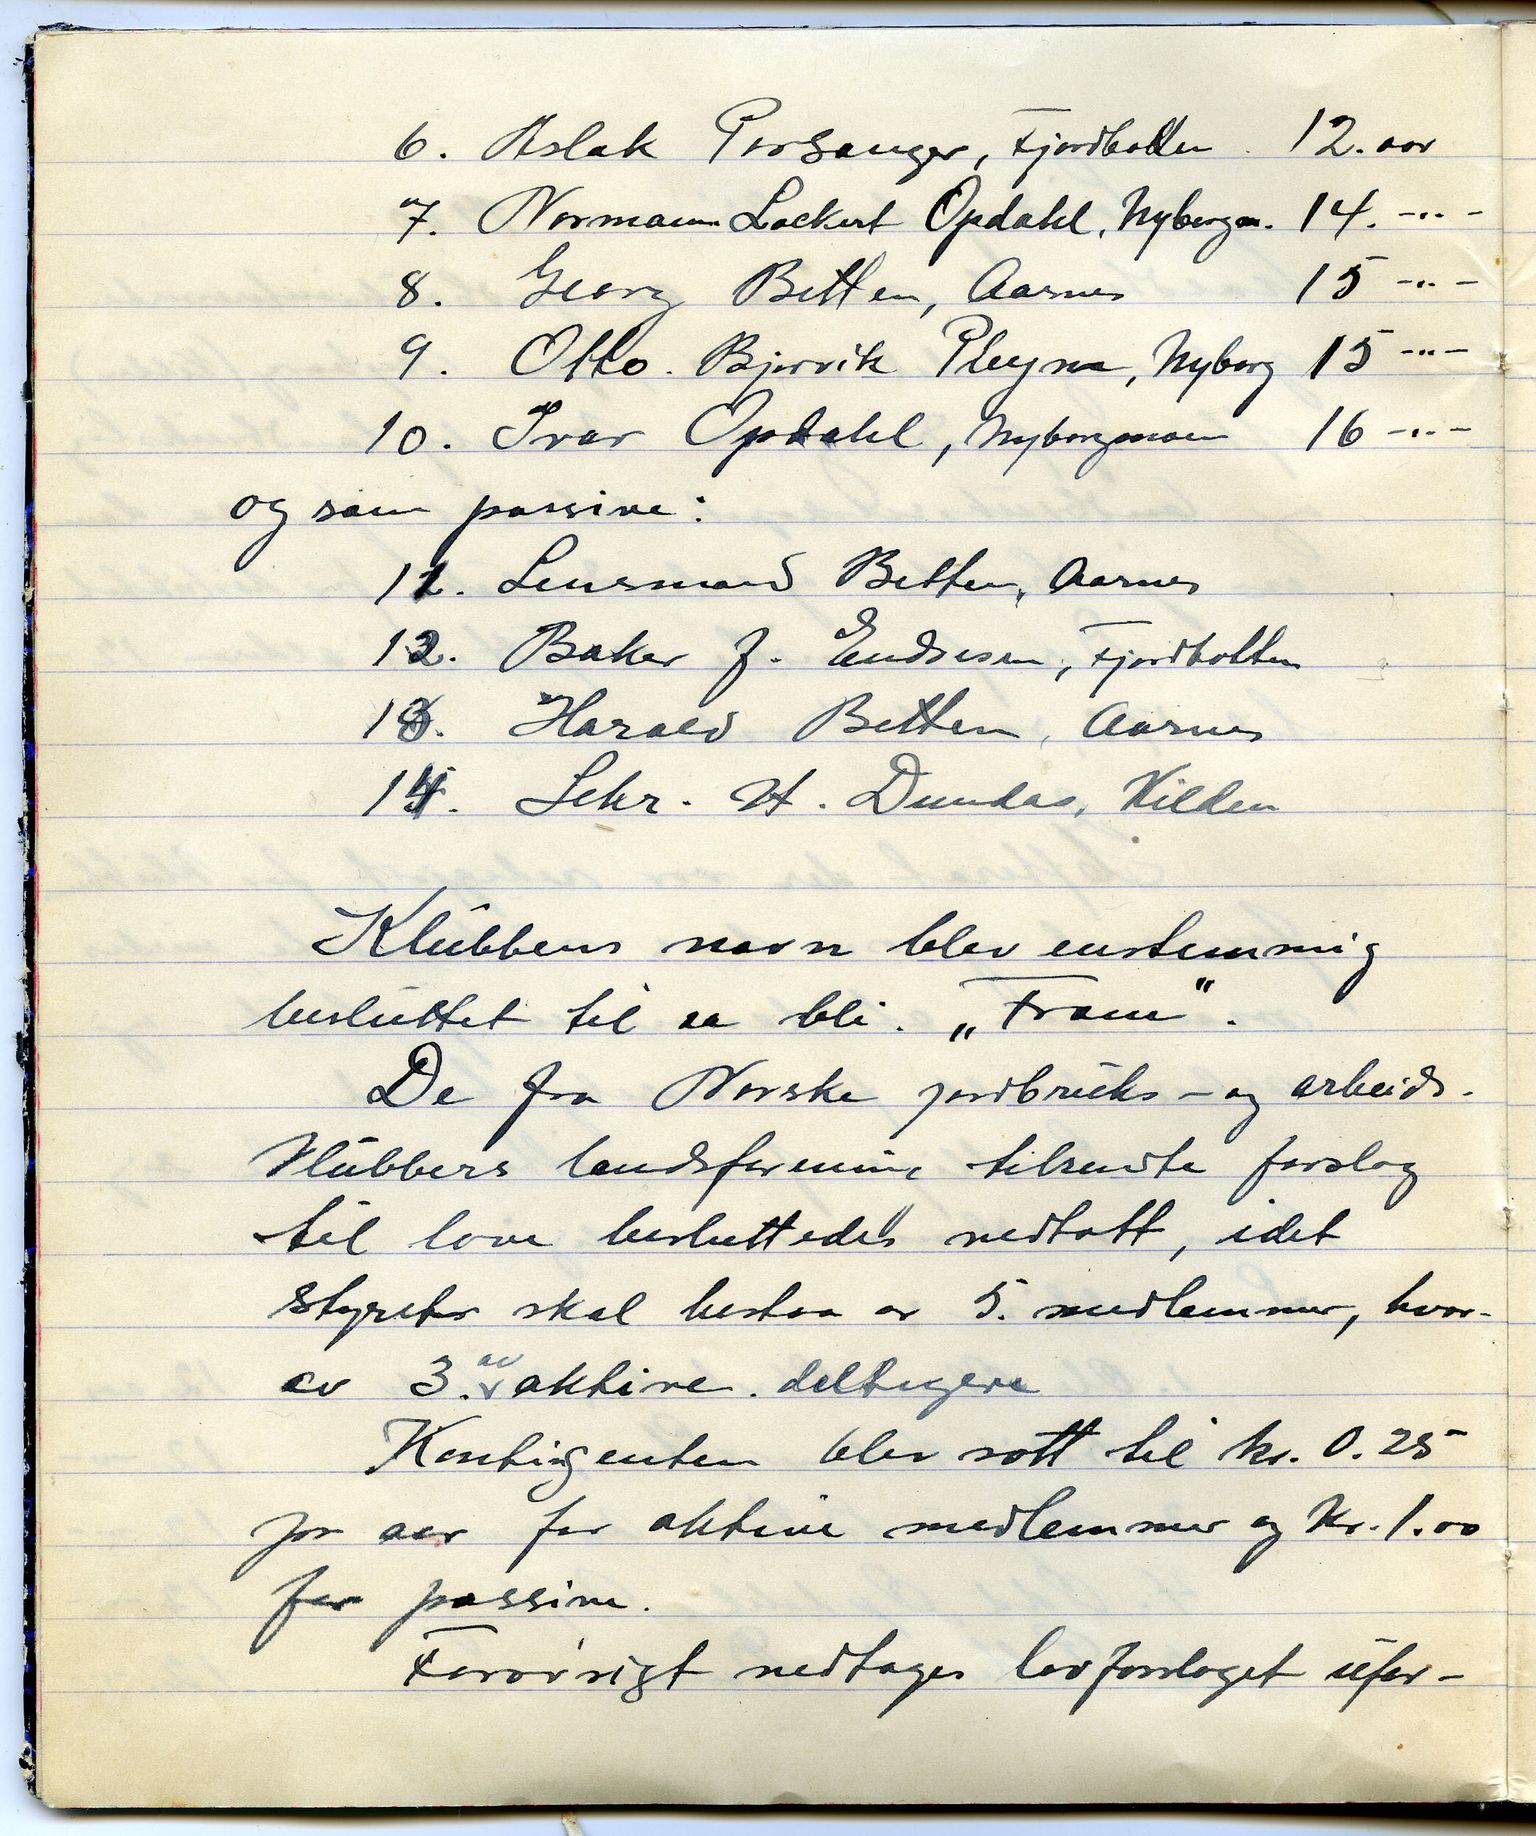 6. Aslak Porsanger, Fjordbotten 12. aar
7. Normann Lockert Opdahl, Nyborgm. 14. -"-
8. Georg Betten, Aarnes 15 -"-
9. Otto Bjørvik Pleym, Nyborg 15 -"-
10. Ivar Opdahl, Nyborgmoen 16 -"-
og som passive:
11. Lensmand Betten, Aarnes
12. Baker J. Endresen, Fjordbotten
13. Harald Betten, Aarnes
14. Sekr. H. Dundas, Kilden
Klubbens navn blev enstemmig
besluttet til aa bli. „Fram".
De fra Norske jordbruks- og arbeids-
klubbers landsforening tilsendte forslag
til love besluttedes vedtatt, idet
styret skal bestaa av 5. medlemmer, hvor-
av 3. av aktive deltagere
Kontigenten blev satt til kr. 0.25
pr aar for aktive medlemmer og Kr. 1.00
for passive.
Forøvrigt vedtages lovforslaget ufor-